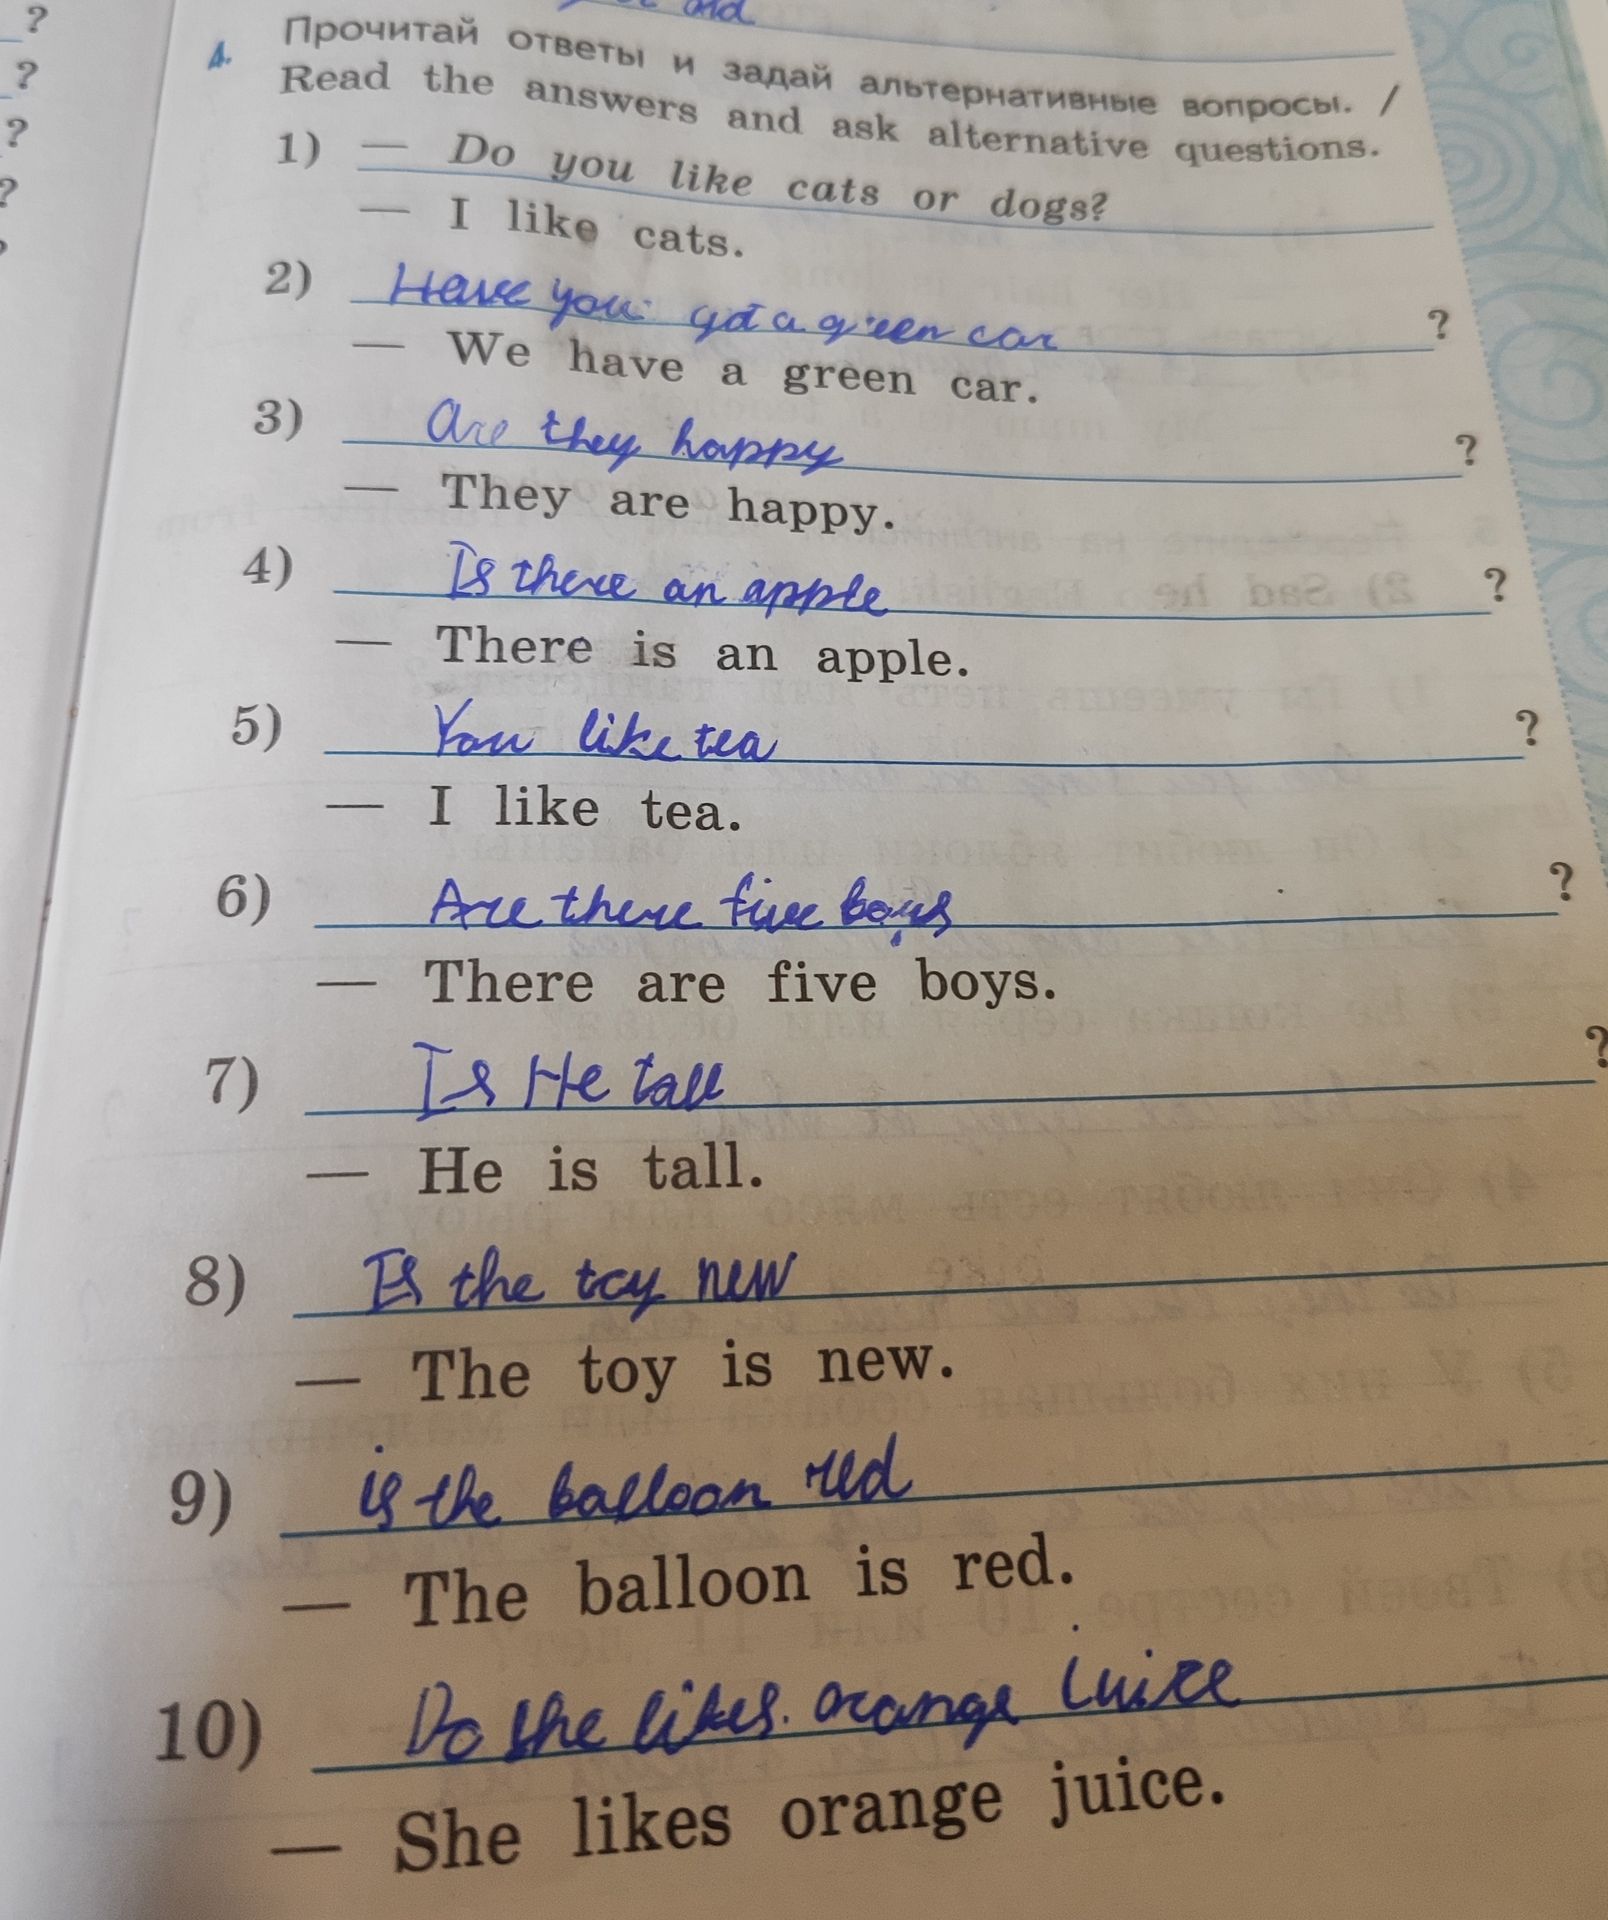 ?
?
?
?
old
4. Прочитай ответы и задай альтернативные вопросы. /
Read the answers and ask alternative questions.
1) — Do you like cats or dogs?
— I like cats.
2) Have you got a green car ?
— We have a green car.
3) are they happy ?
— They are happy.
4) Is there an apple ?
— There is an apple.
5) You like tea ?
— I like tea.
6) Are there five boys ?
— There are five boys.
7) Is He tall ?
— He is tall.
8) Is the toy new
— The toy is new.
9) is the balloon red
— The balloon is red.
10) Do she likes. orange iuice
— She likes orange juice.